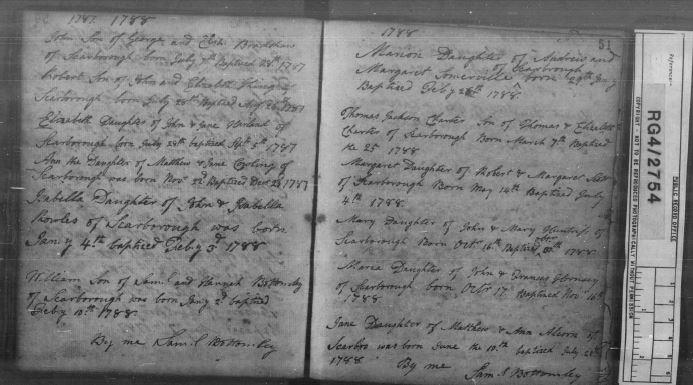 1787. 1788
John Son of George and Eliz. Bradshaw
of Scarborough born July 7th Baptized 28th 1787
Robert Son of John and Elizabeth
Scarborough born July 28th Baptized Aug 26th 1787
Elizabeth Daughter of John & Jane
of Scarborough born July 28th baptized Sept 5th 1787
Ann the Daughter of Matthew & Jane
of Scarborough was born Nov 22d Baptized Decr 23 1787
Isabella Daughter of John & Isabella
Rowles of Scarborough was born
Jany 4th baptized Feby 3d 1788
William Son of Saml and Hannah Bottomley
of Scarborough was born Jany 2d baptized
Feby 10th 1788
By me Saml Bottomley
1788
51
Marion Daughter of Andrew and
Margaret Somerville of Scarborough born 29th Jany
Baptized Feby 28th 1788
Thomas Jackson Charles Son of Thomas & Elizabeth
Charles of Scarborough Born March 7th Baptized
the 25 1788
Margaret Daughter of Robert & Margaret
of Scarborough Born May 14th Baptized July
4th 1788
Mary Daughter of John & Mary
Scarborough Born Octr 16th Baptized 1788
Maria Daughter of John & Frances
of Scarborough born Octr 17 Baptized Novr 16th
1788
Jane Daughter of Matthew & Ann of
Scarbro was born June the 10th baptized July 22d
1788
By me Saml Bottomley
PUBLIC RECORD OFFICE
Reference:-
RG4/2754
COPYRIGHT - NOT TO BE REPRODUCED PHOTOGRAPHICALLY WITHOUT PERMISSION
1
2